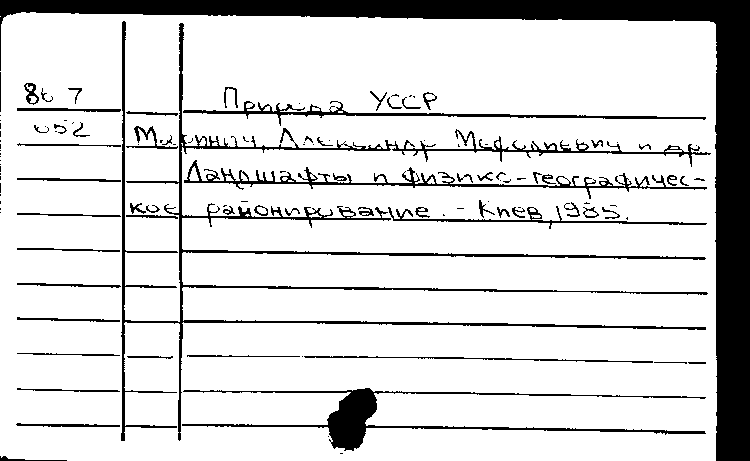 86 7 Природа УССР
052 Маринич, Александр Мефодиевич и др
Ландшафты и физико-географичес-
кое районирование. - Киев, 1985.